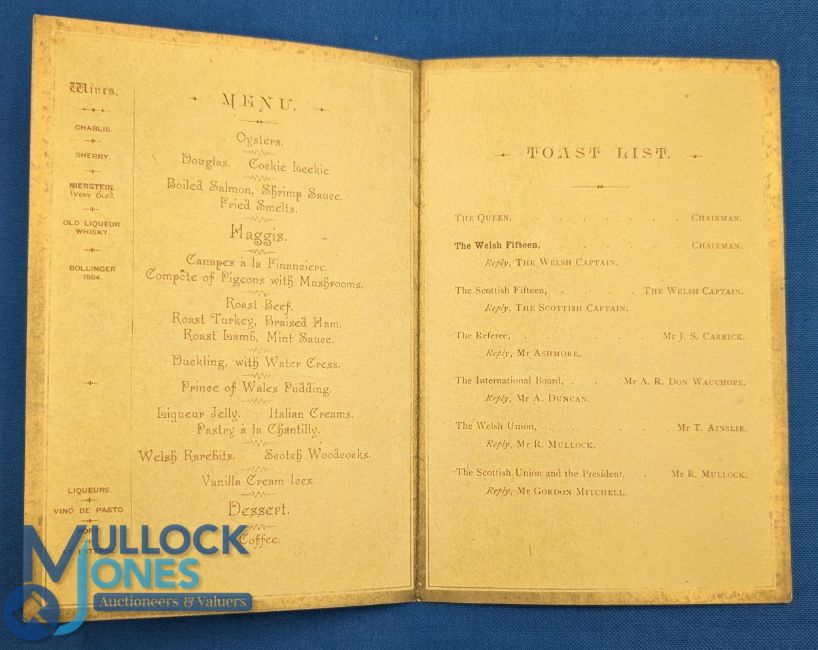 Wines.
CHABLIS.
SHERRY.
NIERSTEIN.
(VERY OLD).
OLD LIQUEUR
WHISKY.
BOLLINGER
1884.
LIQUEURS.
VINO DE PASTO.
MENU.
Oysters.
Douglas. Cockie Leekie.
Boiled Salmon, Shrimp Sauce.
Fried Smelts.
Haggis.
Canapes à la Financiere.
Compôte of Pigeons with Mushrooms.
Roast Beef.
Roast Turkey, Braised Ham.
Roast Lamb, Mint Sauce.
Duckling, with Water Cress.
Prince of Wales Pudding.
Liqueur Jelly. Italian Creams.
Pastry à la Chantilly.
Welsh Rarebits. Scotch Woodcocks.
Vanilla Cream Ices.
Dessert.
Coffee.
TOAST LIST.
THE QUEEN, . . . . . . CHAIRMAN.
The Welsh Fifteen, . . . . . CHAIRMAN.
Reply, THE WELSH CAPTAIN.
The Scottish Fifteen, . . . . THE WELSH CAPTAIN.
Reply, THE SCOTTISH CAPTAIN.
The Referee, . . . . . MR J. S. CARRICK.
Reply, MR ASHMORE.
The International Board, . . MR A. R. DON WAUCHOPE.
Reply, MR A. DUNCAN.
The Welsh Union, . . . . . . MR T. AINSLIE.
Reply, MR R. MULLOCK.
The Scottish Union and the President, . MR R. MULLOCK.
Reply, MR GORDON MITCHELL.
MULLOCK
JONES
Auctioneers & Valuers